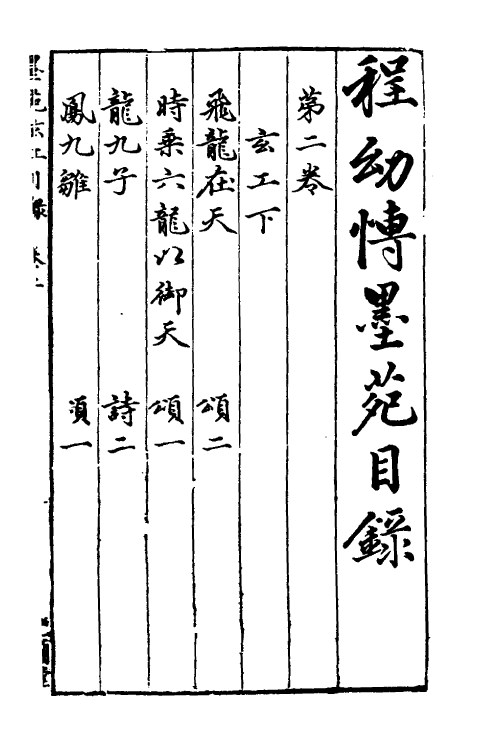 程幼博墨苑目錄
第二卷
玄工下
飛龍在天 頌二
時乘六龍以御天 頌一
龍九子 詩二
鳳九雛 頌一